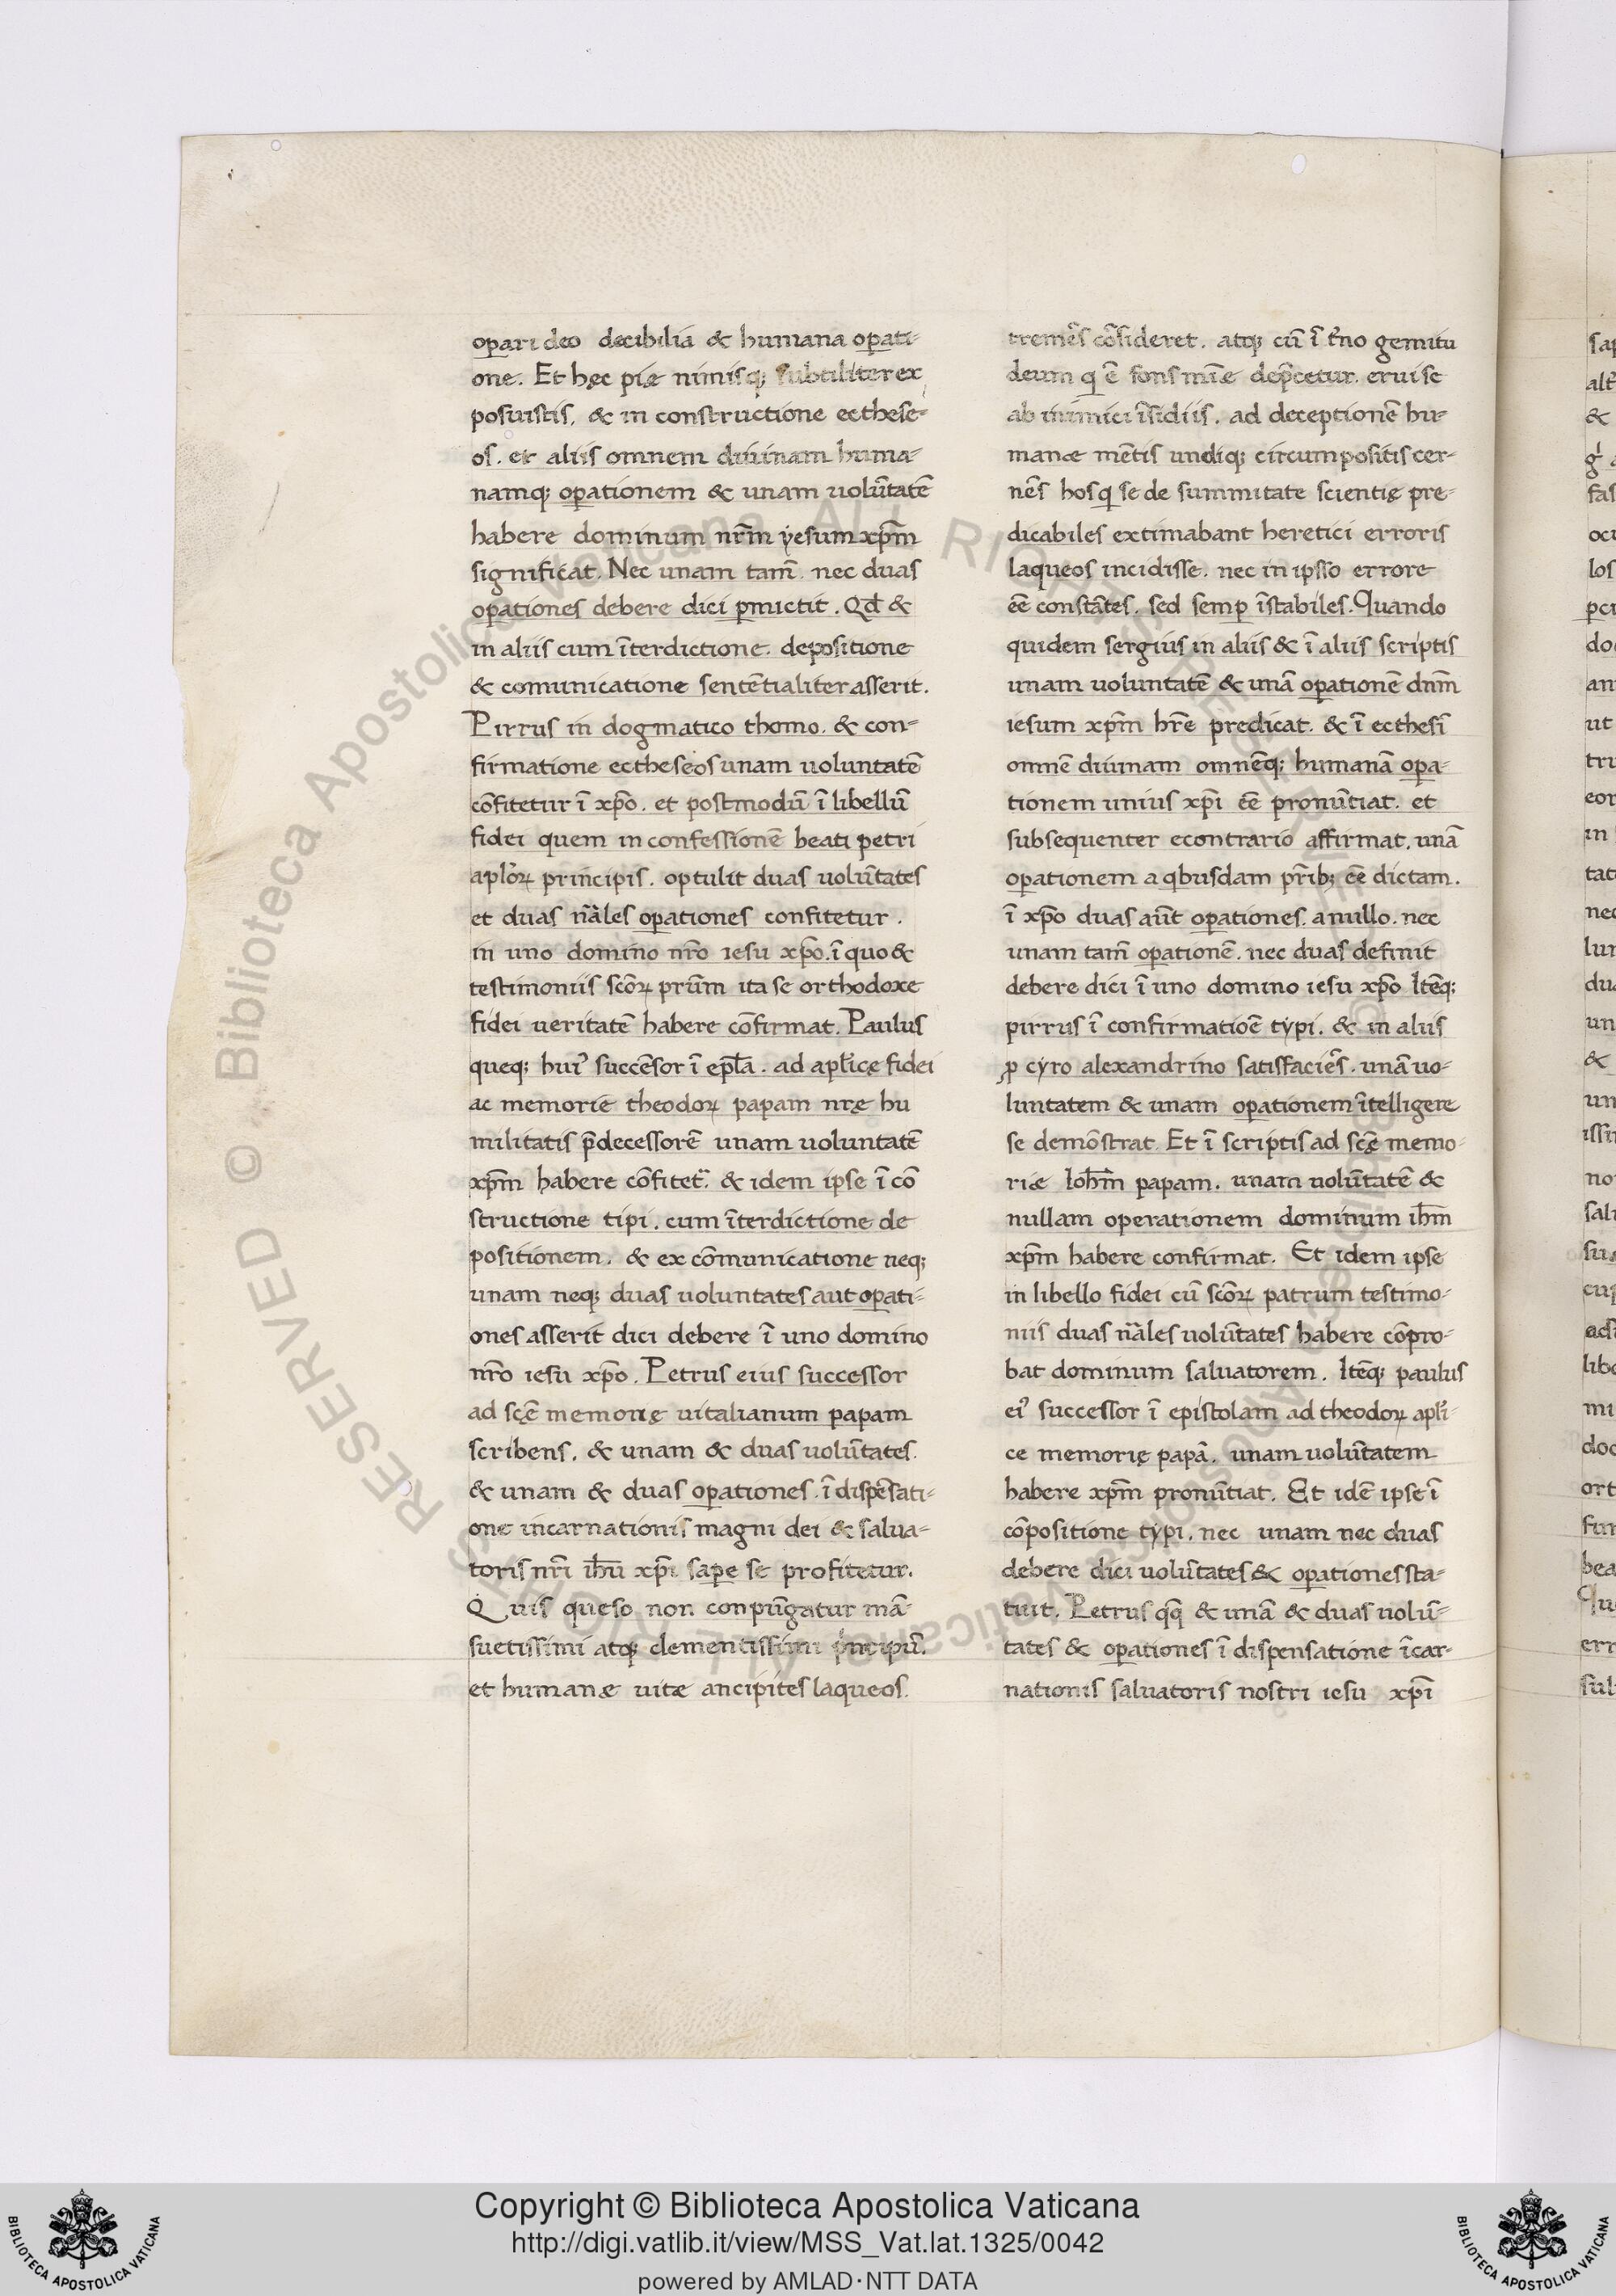 oꝑari deo decibilia & humana oꝑati-
one. Et hęc pię nimisq; subtiliter ex
posuistis, & in constructione ecthese-
os. et aliis omnem diuinam huma-
namq; oꝑationem & unam uolūtatē
habere dominum nr̄m yesum xp̄m
significat. Nec unam tam̄. nec duas
oꝑationes debere dici ꝑmictit. Qđ &
in aliis cum īterdictione. depositione
& comunicatione sentētialiter asserit.
Pirrus in dogmatico thomo. & con-
firmatione ectheseos unam uoluntatē
cōfitetur ī xp̄o. et postmodū ī libellū
fidei quem in confessionē beati petri
apl'oꝝ principis. optulit duas uolūtates
et duas nāles oꝑationes confitetur.
in uno domino nr̄o iesu xp̄o. ī quo &
testimoniis scōꝝ prūm ita se orthodoxe
fidei ueritatē habere cōfirmat. Paulus
queq; hui' succēsor ī epl̄a. ad apl'icę fidei
ac memorie theodoꝝ papam nrę hu
militatis p̄decessorē unam uoluntatē
xp̄m habere cōfitet. & idem ipse ī cō
structione tipi. cum īterdictione de
positionem. & ex cōmunicatione neq;
unam neq; duas uoluntates aut oꝑati-
ones asserit dici debere ī uno domino
nr̄o iesu xp̄o. Petrus eius successor
ad scę̄ memorię uitalianum papam
scribens. & unam & duas uolūtates.
& unam & duas oꝑationes. ī dispēsati-
one incarnationis magni dei & salua-
toris nr̄i ih̄u xp̄i saꝑe se profitetur.
Quis queso non conpūgatur mā-
suetissimi atq; clementissimi p̄ncipū.
et humanæ uitæ ancipites laqueos.
tremēs cōsideret. atq; cū ī t'no gemitu
deum q ē fons mīæ dep̄cetur. erui se
ab inimici īsidiis. ad deceptionē hu-
manæ mētis undiq; circumpositis cer-
nēs hosq se de summitate scientię pre-
dicabiles extimabant heretici erroris
laqueos incidisse. nec in ipso errore
ēe constātes. sed semꝑ īstabiles. Quando
quidem sergius in aliis & ī aliis scriptis
unam uoluntatē & unā oꝑationē dn̄m
iesum xp̄m hr̄e predicat. & ī ecthesī
omnē diuinam omnēq; humanā oꝑa-
tionem unius xp̄i ēe pronūtiat. et
subsequenter econtrario affirmat. unā
oꝑationem a qbusdam pr̄ib; ēe dictam.
ī xp̄o duas aūt oꝑationes. anullo. nec
unam tam̄ oꝑationē. nec duas definit
debere dici ī uno domino iesu xp̄o Itēq;
pirrus ī confirmatiōe typi. & in aliis
ꝓ cyro alexandrino satisfaciēs. unā uo-
luntatem & unam oꝑationem ītelligere
se demōstrat. Et ī scriptis ad scę̄ memo-
riæ Ioh̄m papam. unam uolūtatē &
nullam operationem dominum ih̄m
xp̄m habere confirmat. Et idem ipse
in libello fidei cū scōꝝ patrum testimo-
niis duas nāles uolūtates habere cōpro-
bat dominum saluatorem. Itēq; paulus
ei' successor ī epistolam ad theodoꝝ apl'i-
ce memorię papā. unam uolūtatem
habere xp̄m pronūtiat. Et idē ipse ī
cōpositione typi. nec unam nec duas
debere dici uolūtates & oꝑationes sta-
tuit. Petrus qq̄ & unā & duas uolū-
tates & oꝑationes ī dispensatione īcar-
nationis saluatoris nostri iesu xp̄i
Copyright © Biblioteca Apostolica Vaticana
http://digi.vatlib.it/view/MSS_Vat.lat.1325/0042
powered by AMLAD·NTT DATA
BIBLIOTECA APOSTOLICA VATICANA
BIBLIOTECA APOSTOLICA VATICANA